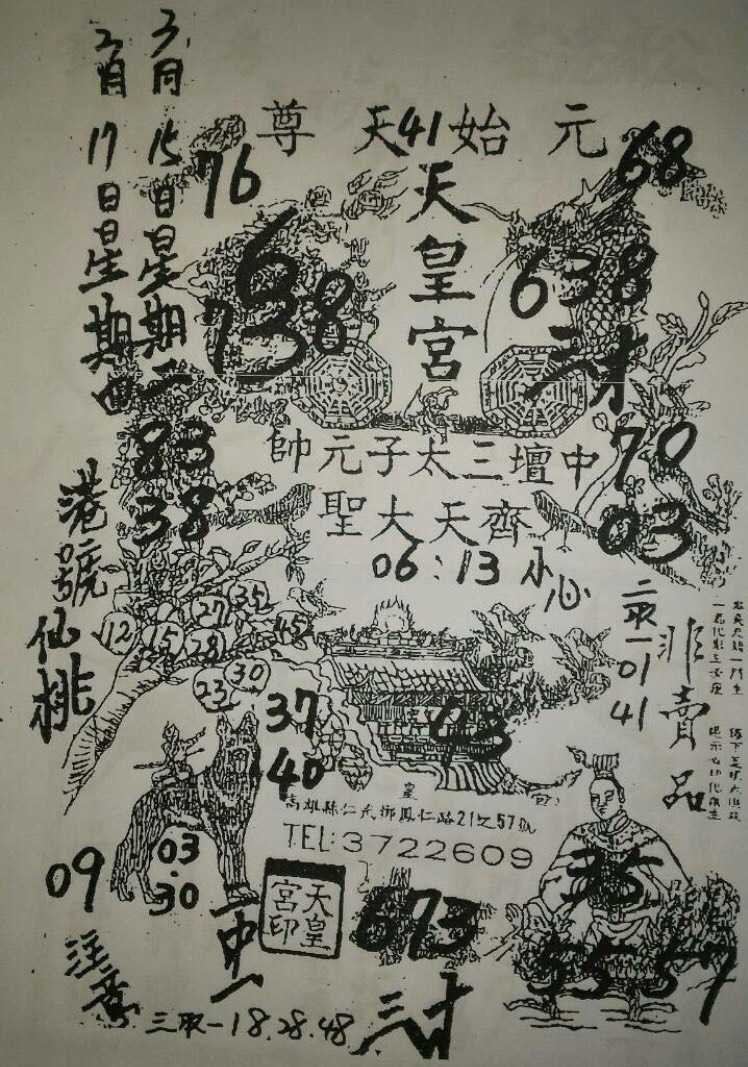 元始天尊
41
76
68
天皇宮
3月15日星期二
2月17日星期四
6
738
638
83
38
70
03
中壇三太子元帥
齊天大聖
06:13 小心
港號仙桃
35
27
12
15
28
45
30
23
二取一
01
41
非賣品
37
40
43
高雄縣仁武鄉鳳仁路21之57號
TEL:3722609
03.30
09
注意
二中一
天皇宮印
673
三才
35
55 57
三取一18.28.48